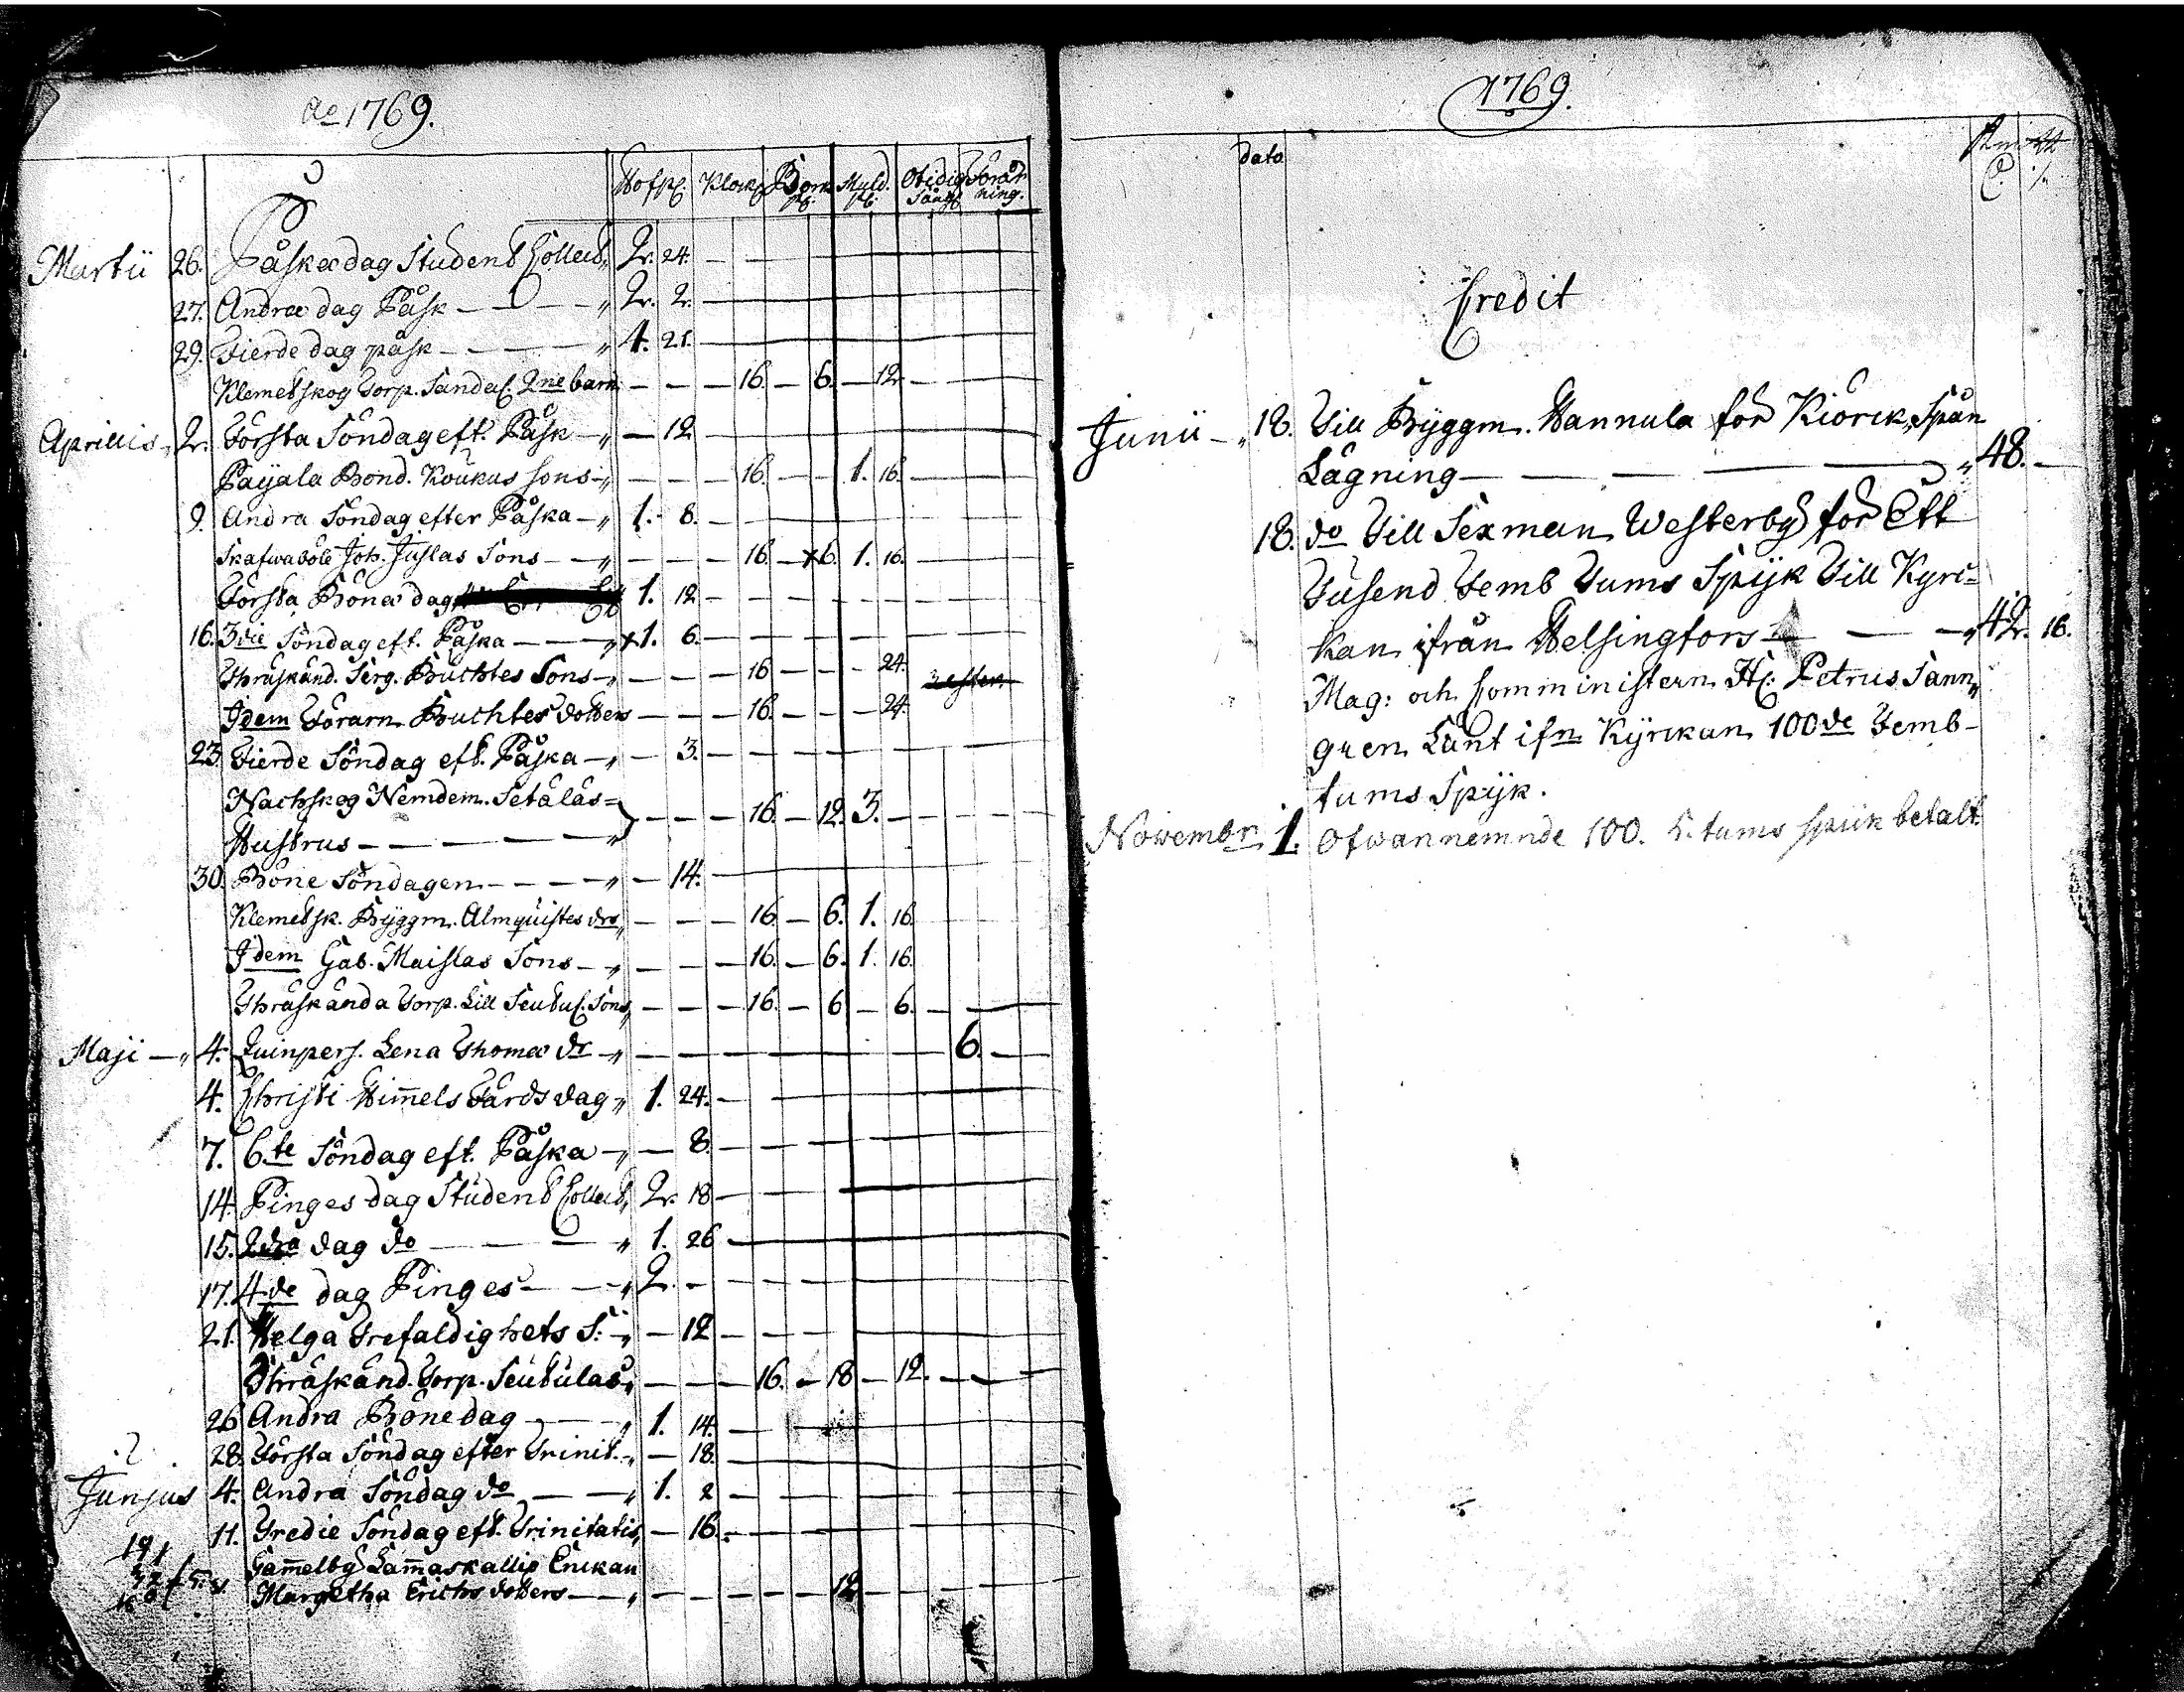 Ao 1769.
Hofp. Klock Bork Muld. Otidig Förär
p6. p6. Sängl. ning.
Martii 26. Påskædag Student Collect „ 2. 24. —
27. Andræ dag Påsk — — — „ 2. 2. —
29. Fierde dag påsk — — — „ 4. 21. —
Klemetskog Torp. Sandel. 2ne barn — — — 16. — 6. — 12. —
Aprillis „ 2. Första Söndag eft. Påsk — „ — 12 —
Payala Bond. Koukus sons — „ — — — 16. — — 1. 16. —
9. Andra Söndag efter Påska — „ 1. 8. —
Skafwaböle Joh. Juslas Sons — „ — — — 16. — x6. 1. 16. —
Första Bönæ dag 1. 12 —
16. 3die Söndag eft. Påska — — — „ x1. 6. —
Thräskänd. Serg. Buchtes Sons — „ — — — 16 — — — 24.
Idem Förarn Buchtes dotters — — — 16. — — — 24.
23. Fierde Söndag eft. Påska — „ — 3. —
Nachskog Nemdem. Setälas=
Hustrus — — — — „ — — — 16. — 12. 3. —
30. Böne Söndagen — — — — „ — 14. —
Klemetsk. Byggm. Almquistes drs „ — — — 16. — 6. 1. 16.
Idem Gab. Maislas Sons — „ — — — 16. — 6. 1. 16.
Thräskända Torp. Lill Seutul. Sons „ — — — 16. — 6 — 6. —
Maji — „ 4. Quinpers. Lena Thomæ dr — „ — 6. —
4. Christi Himmels Färds dag „ 1. 24. —
7. 6.te Söndag eft. Påska — „ — 8. —
14. Pinges dag Student Collect „ 2. 18 —
15. 2dra dag do — — — „ 1. 26 —
17. 4de dag Pinges — — „ 2. —
21. Helga Trefaldighets S: — „ — 12 —
Thräskänd. Torp. Seutulas „ — — — 16. — 18 — 12. —
26 Andra Böne dag — — — „ 1. 14. —
28. Första Söndag efter Trinit. — „ — 18. —
Junjus 4. Andra Söndag do — — „ 1. 2 —
11. Tredie Söndag eft. Trinitatis „ — 16. —
Gammelby Lammaskallio Enkan
Margetha Erichs dotters — — „ — — — — — 12 —
1769.
dato
Credit
Junii — „ 18. Till Byggm. Hannula för Kiörck, Spån
Lagning — — — — „ 48. —
18. do Till Sexman Westerby för Ett
Tusend Femb Tums Spijk Till Kyrc=
kan ifrån Helsingfors — — — „ 42. 16.
Mag: och Comministern H: Petrus Sann„
gren Länt ifn Kyrckan 100de Femb-
tums Spijk.
Nowembr. 1. Ofwannemnde 100. 5. tums spiik betalt.